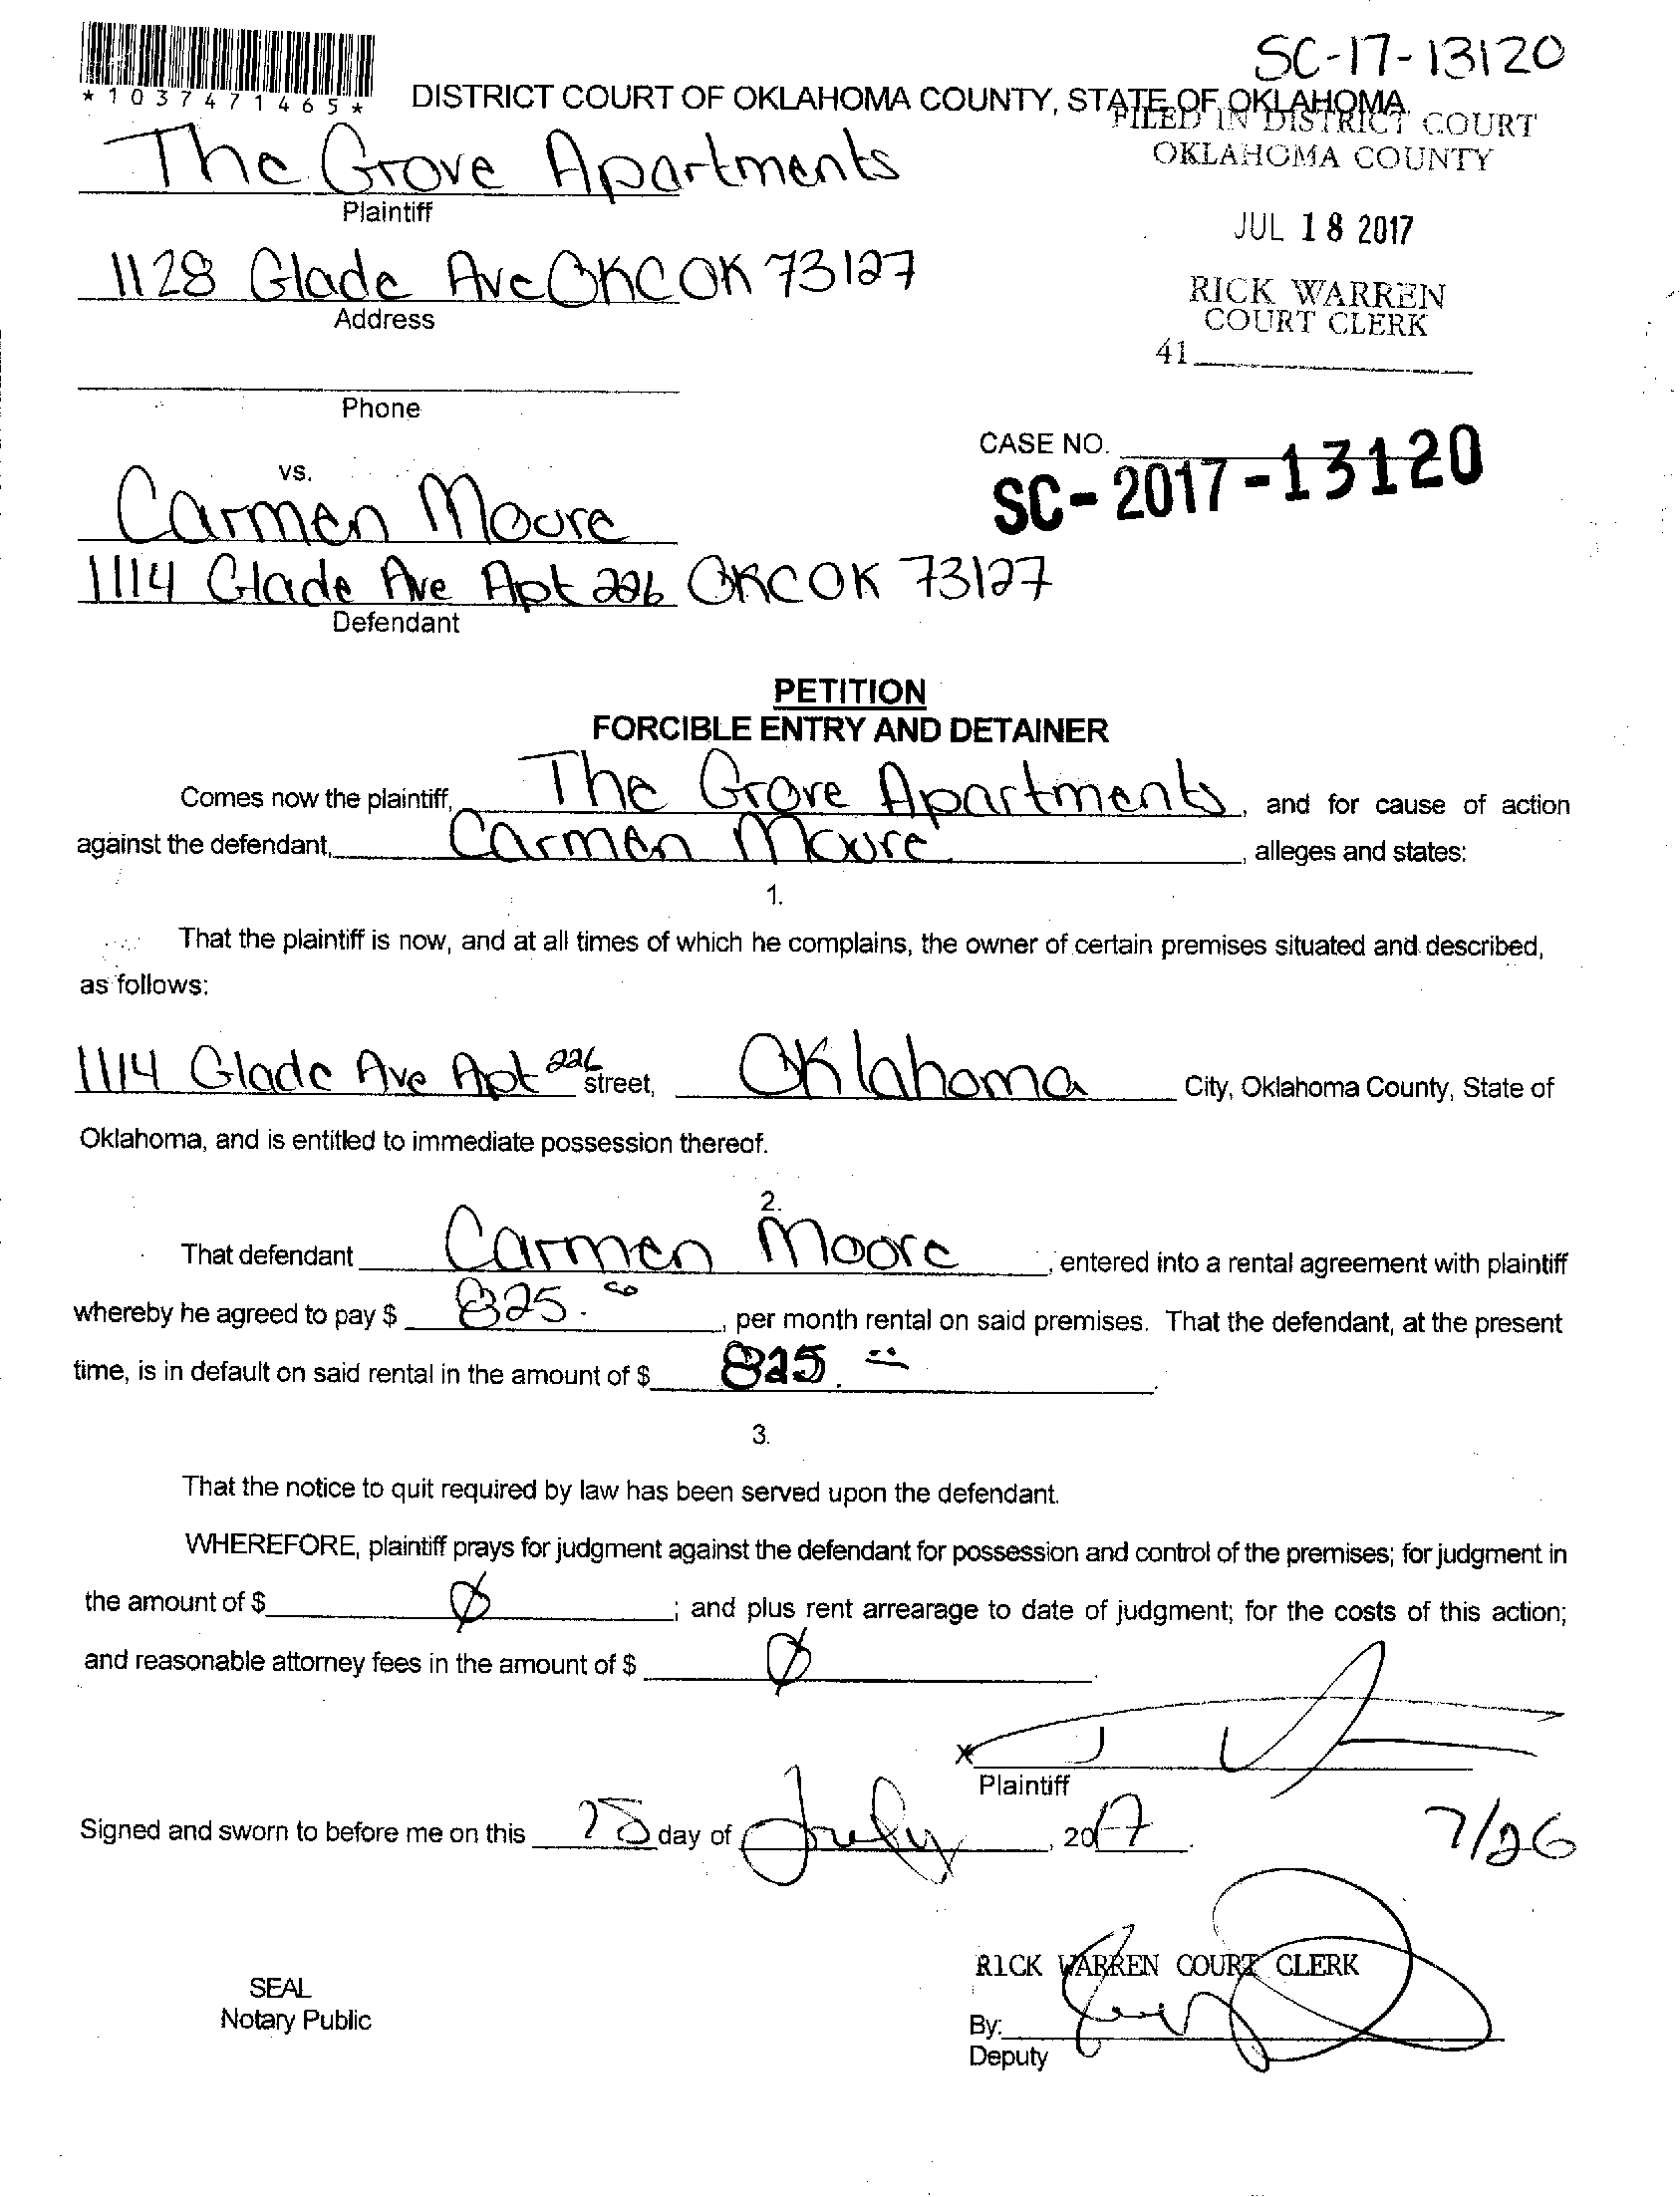 SC-17-13120
*1037471465*
DISTRICT COURT OF OKLAHOMA COUNTY, STATE OF OKLAHOMA
FILED IN DISTRICT COURT
OKLAHOMA COUNTY
The Grove Apartments
Plaintiff
JUL 18 2017
1128 Glade Ave OKC OK 73127
Address
RICK WARREN
COURT CLERK
41
Phone
CASE NO.
SC-2017-13120
vs.
Carmen Moore
1114 Glade Ave Apt 226 OKC OK 73127
Defendant
PETITION
FORCIBLE ENTRY AND DETAINER
Comes now the plaintiff, The Grove Apartments, and for cause of action
against the defendant, Carmen Moore, alleges and states:
1.
That the plaintiff is now, and at all times of which he complains, the owner of certain premises situated and described,
as follows:
1114 Glade Ave Apt 226 street, Oklahoma City, Oklahoma County, State of
Oklahoma, and is entitled to immediate possession thereof.
2.
That defendant Carmen Moore, entered into a rental agreement with plaintiff
whereby he agreed to pay $ 825.00, per month rental on said premises. That the defendant, at the present
time, is in default on said rental in the amount of $ 825.
3.
That the notice to quit required by law has been served upon the defendant.
WHEREFORE, plaintiff prays for judgment against the defendant for possession and control of the premises; for judgment in
the amount of $ Ø; and plus rent arrearage to date of judgment; for the costs of this action;
and reasonable attorney fees in the amount of $ Ø.
x
Plaintiff
Signed and sworn to before me on this day of July, 2017.
7/26
RICK WARREN COURT CLERK
SEAL
Notary Public
By:
Deputy